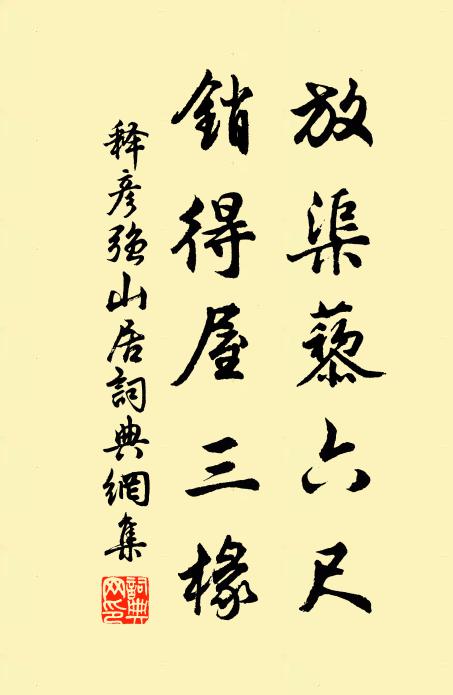 放渠藜六尺
銷得屋三椽
释彦强山居詞典網集
詞典网印